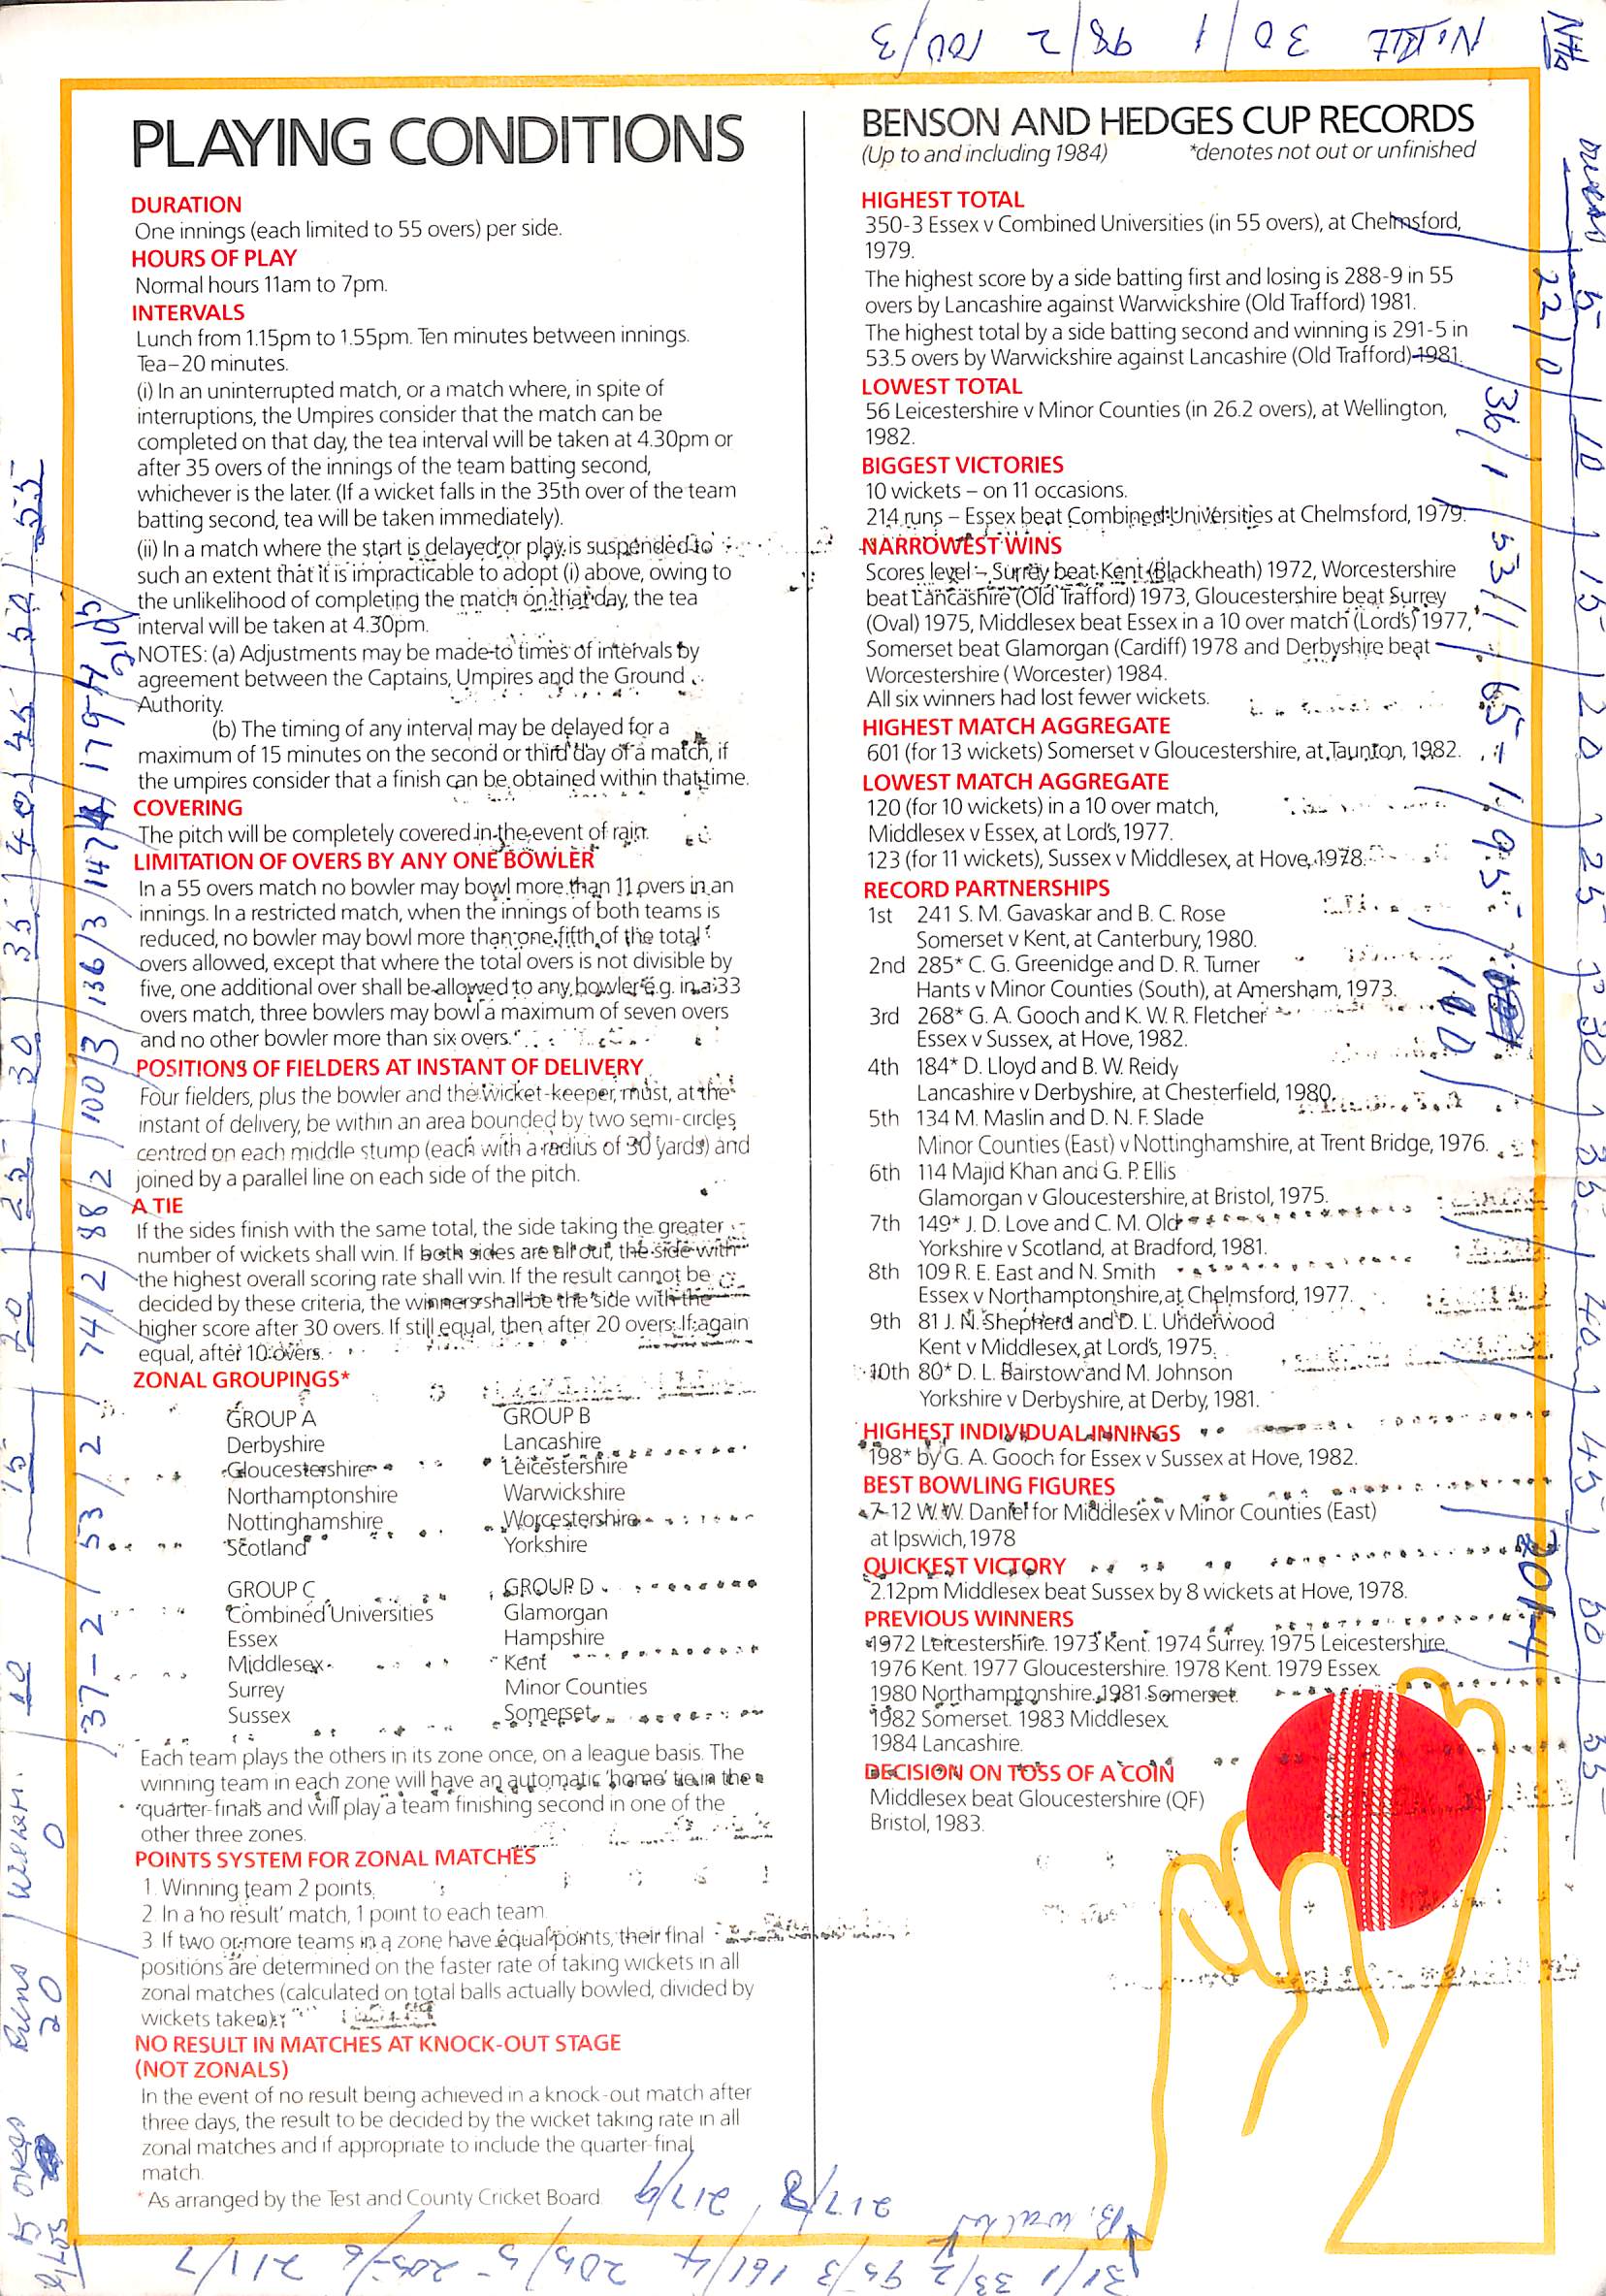 PLAYING CONDITIONS
DURATION
One innings (each limited to 55 overs) per side.
HOURS OF PLAY
Normal hours 11am to 7pm.
INTERVALS
Lunch from 1.15pm to 1.55pm. Ten minutes between innings.
Tea–20 minutes.
(i) In an uninterrupted match, or a match where, in spite of
interruptions, the Umpires consider that the match can be
completed on that day, the tea interval will be taken at 4.30pm or
after 35 overs of the innings of the team batting second,
whichever is the later. (If a wicket falls in the 35th over of the team
batting second, tea will be taken immediately).
(ii) In a match where the start is delayed or play is suspended to
such an extent that it is impracticable to adopt (i) above, owing to
the unlikelihood of completing the match on that day, the tea
interval will be taken at 4.30pm.
NOTES: (a) Adjustments may be made to times of intervals by
agreement between the Captains, Umpires and the Ground
Authority.
(b) The timing of any interval may be delayed for a
maximum of 15 minutes on the second or third day of a match, if
the umpires consider that a finish can be obtained within that time.
COVERING
The pitch will be completely covered in the event of rain.
LIMITATION OF OVERS BY ANY ONE BOWLER
In a 55 overs match no bowler may bowl more than 11 overs in an
innings. In a restricted match, when the innings of both teams is
reduced, no bowler may bowl more than one fifth of the total
overs allowed, except that where the total overs is not divisible by
five, one additional over shall be allowed to any bowler e.g. in a 33
overs match, three bowlers may bowl a maximum of seven overs
and no other bowler more than six overs.
POSITIONS OF FIELDERS AT INSTANT OF DELIVERY
Four fielders, plus the bowler and the wicket-keeper, must, at the
instant of delivery, be within an area bounded by two semi-circles
centred on each middle stump (each with a radius of 30 yards) and
joined by a parallel line on each side of the pitch.
A TIE
If the sides finish with the same total, the side taking the greater
number of wickets shall win. If both sides are all out, the side with
the highest overall scoring rate shall win. If the result cannot be
decided by these criteria, the winners shall be the side with the
higher score after 30 overs. If still equal, then after 20 overs. If again
equal, after 10 overs.
ZONAL GROUPINGS*
GROUP A
Derbyshire
Gloucestershire
Northamptonshire
Nottinghamshire
Scotland
GROUP B
Lancashire
Leicestershire
Warwickshire
Worcestershire
Yorkshire
GROUP C
Combined Universities
Essex
Middlesex
Surrey
Sussex
GROUP D
Glamorgan
Hampshire
Kent
Minor Counties
Somerset
Each team plays the others in its zone once, on a league basis. The
winning team in each zone will have an automatic 'home' tie in the
quarter-finals and will play a team finishing second in one of the
other three zones.
POINTS SYSTEM FOR ZONAL MATCHES
1. Winning team 2 points.
2. In a 'no result' match, 1 point to each team.
3 If two or more teams in a zone have equal points, their final
positions are determined on the faster rate of taking wickets in all
zonal matches (calculated on total balls actually bowled, divided by
wickets taken).
NO RESULT IN MATCHES AT KNOCK-OUT STAGE
(NOT ZONALS)
In the event of no result being achieved in a knock-out match after
three days, the result to be decided by the wicket taking rate in all
zonal matches and if appropriate to include the quarter-final
match.
*As arranged by the Test and County Cricket Board.
BENSON AND HEDGES CUP RECORDS
(Up to and including 1984) *denotes not out or unfinished
HIGHEST TOTAL
350-3 Essex v Combined Universities (in 55 overs), at Chelmsford,
1979.
The highest score by a side batting first and losing is 288-9 in 55
overs by Lancashire against Warwickshire (Old Trafford) 1981.
The highest total by a side batting second and winning is 291-5 in
53.5 overs by Warwickshire against Lancashire (Old Trafford) 1981.
LOWEST TOTAL
56 Leicestershire v Minor Counties (in 26.2 overs), at Wellington,
1982.
BIGGEST VICTORIES
10 wickets – on 11 occasions.
214 runs – Essex beat Combined Universities at Chelmsford, 1979.
NARROWEST WINS
Scores level – Surrey beat Kent (Blackheath) 1972, Worcestershire
beat Lancashire (Old Trafford) 1973, Gloucestershire beat Surrey
(Oval) 1975, Middlesex beat Essex in a 10 over match (Lord's) 1977,
Somerset beat Glamorgan (Cardiff) 1978 and Derbyshire beat
Worcestershire (Worcester) 1984.
All six winners had lost fewer wickets.
HIGHEST MATCH AGGREGATE
601 (for 13 wickets) Somerset v Gloucestershire, at Taunton, 1982.
LOWEST MATCH AGGREGATE
120 (for 10 wickets) in a 10 over match,
Middlesex v Essex, at Lord's, 1977.
123 (for 11 wickets), Sussex v Middlesex, at Hove, 1978.
RECORD PARTNERSHIPS
1st 241 S. M. Gavaskar and B. C. Rose
Somerset v Kent, at Canterbury, 1980.
2nd 285* C. G. Greenidge and D. R. Turner
Hants v Minor Counties (South), at Amersham, 1973.
3rd 268* G. A. Gooch and K. W. R. Fletcher
Essex v Sussex, at Hove, 1982.
4th 184* D. Lloyd and B. W. Reidy
Lancashire v Derbyshire, at Chesterfield, 1980.
5th 134 M. Maslin and D. N. F. Slade
Minor Counties (East) v Nottinghamshire, at Trent Bridge, 1976.
6th 114 Majid Khan and G. P. Ellis
Glamorgan v Gloucestershire, at Bristol, 1975.
7th 149* J. D. Love and C. M. Old
Yorkshire v Scotland, at Bradford, 1981.
8th 109 R. E. East and N. Smith
Essex v Northamptonshire, at Chelmsford, 1977.
9th 81 J. N. Shepherd and D. L. Underwood
Kent v Middlesex, at Lord's, 1975.
10th 80* D. L. Bairstow and M. Johnson
Yorkshire v Derbyshire, at Derby, 1981.
HIGHEST INDIVIDUAL INNINGS
198* by G. A. Gooch for Essex v Sussex at Hove, 1982.
BEST BOWLING FIGURES
7-12 W. W. Daniel for Middlesex v Minor Counties (East)
at Ipswich, 1978
QUICKEST VICTORY
2.12pm Middlesex beat Sussex by 8 wickets at Hove, 1978.
PREVIOUS WINNERS
1972 Leicestershire. 1973 Kent. 1974 Surrey. 1975 Leicestershire.
1976 Kent. 1977 Gloucestershire. 1978 Kent. 1979 Essex.
1980 Northamptonshire. 1981 Somerset.
1982 Somerset. 1983 Middlesex.
1984 Lancashire.
DECISION ON TOSS OF A COIN
Middlesex beat Gloucestershire (QF)
Bristol, 1983.
30/1 98/2 100/3
5 10 15 20 25 30 35 40 45 50 55
22/0 36/1 53/1 65-1 95- 201-4
5 overs 10 15 20 25 30 35 40 45 50 55
Runs 20 0 37-2 53/2 74/2 88/2 100/3 136/3 147/4 179-4
31/1 33/2 95/3 161/4 205/5 205/6 211/7
217/8 217/9